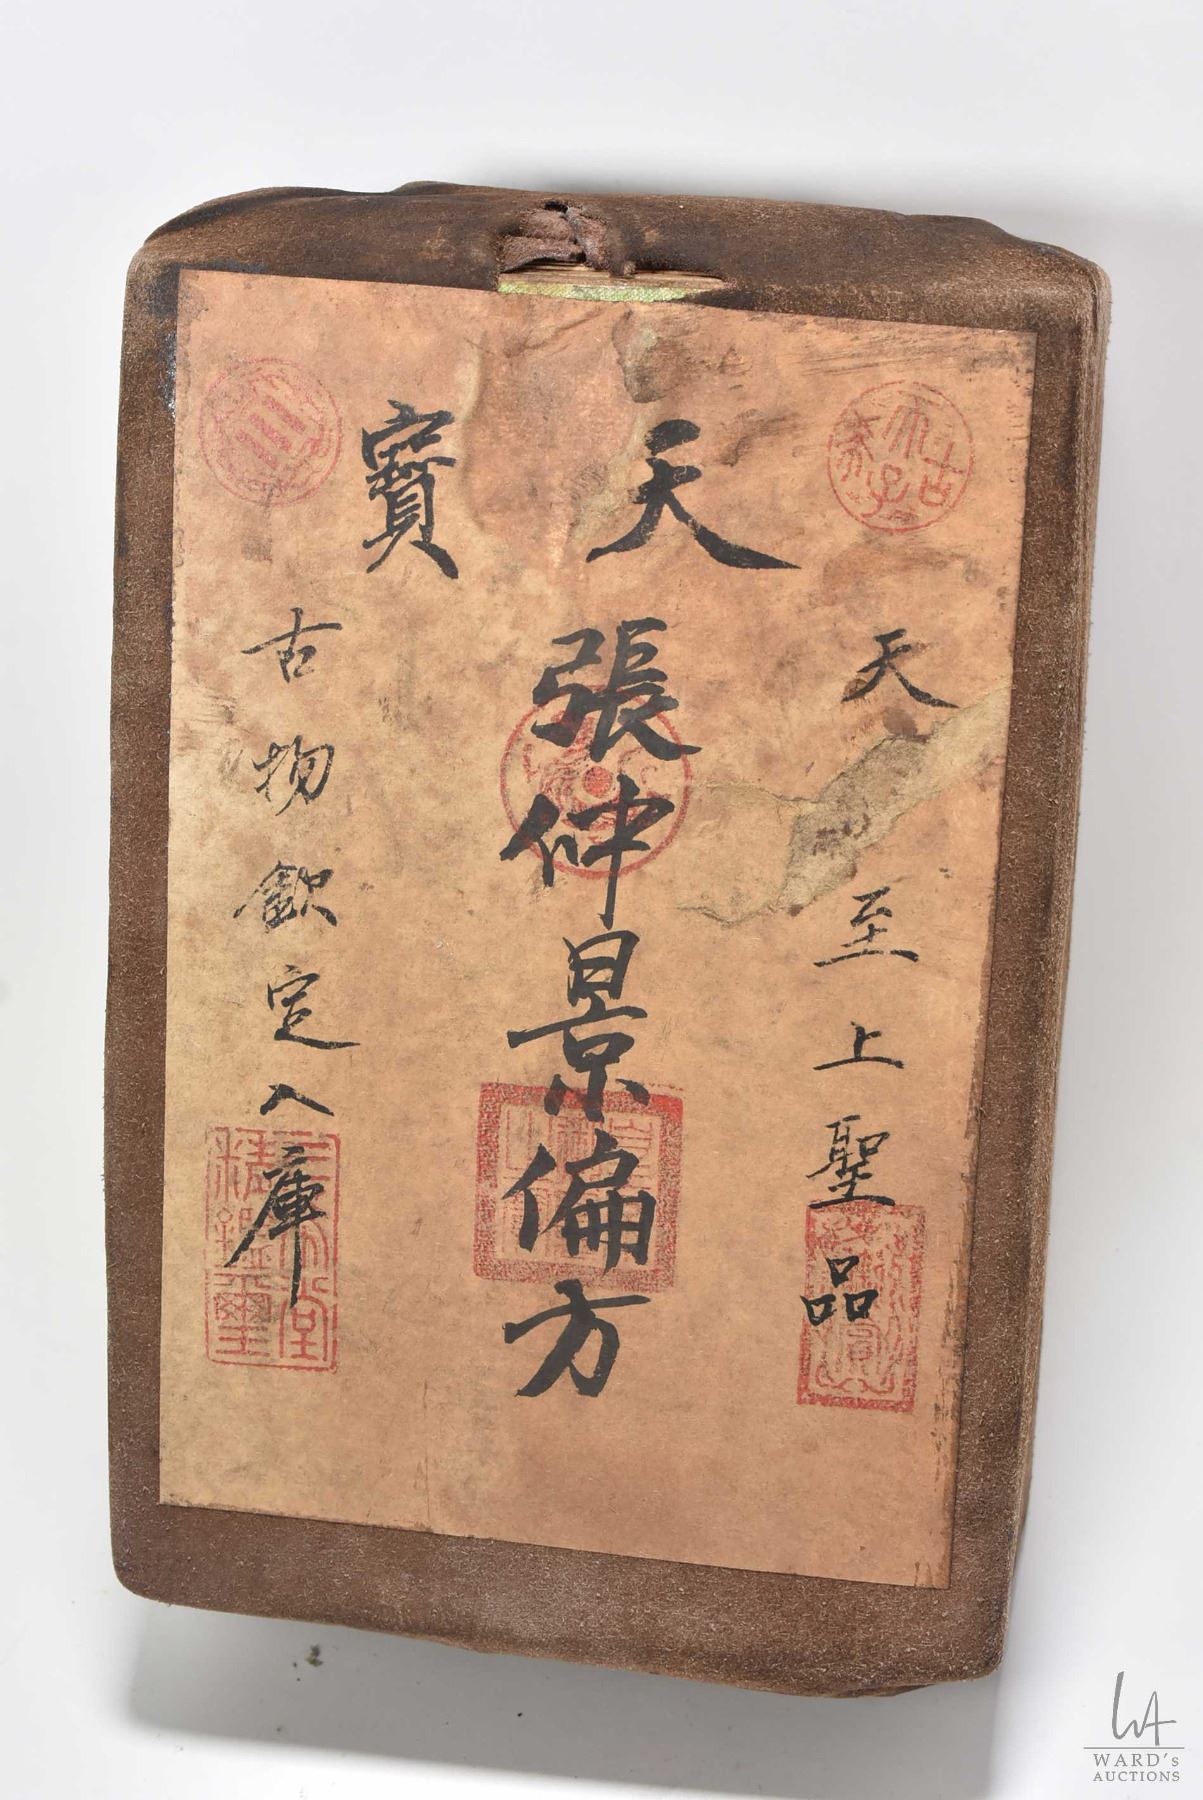 天寶
天至上聖品
張仲景偏方
古物欽定入庫
WARD's
AUCTIONS